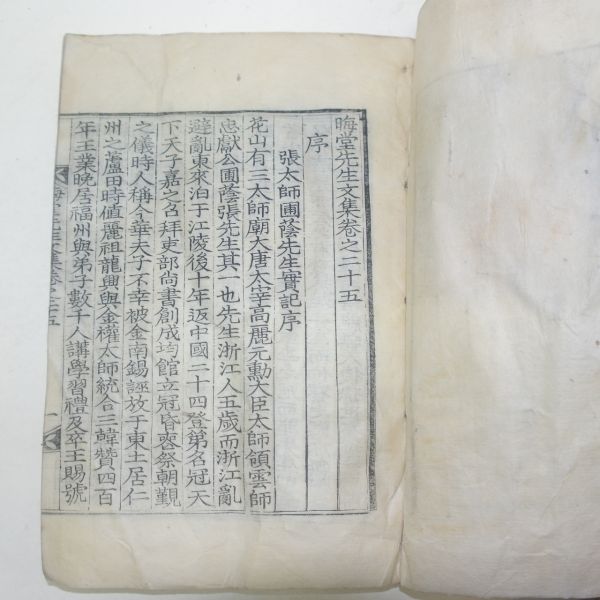 晦堂先生文集卷之二十五
序
張太師圃蔭先生實記序
花山有三太師廟大唐太宰高麗元勳大臣太師領雲師
忠獻公圃蔭張先生其一也先生浙江人五歲而浙江亂
避亂東來泊于江陵後十年返中國二十四登第名冠天
下天子嘉之召拜吏部尚書創成均館立冠昏喪祭朝覲
之儀時人稱今華夫子不幸被金南錫誣放于東土居仁
州之蘆田時値麗祖龍興與金權太師統合三韓贊四百
年王業晩居福州與弟子數千人講學習禮及卒王賜號